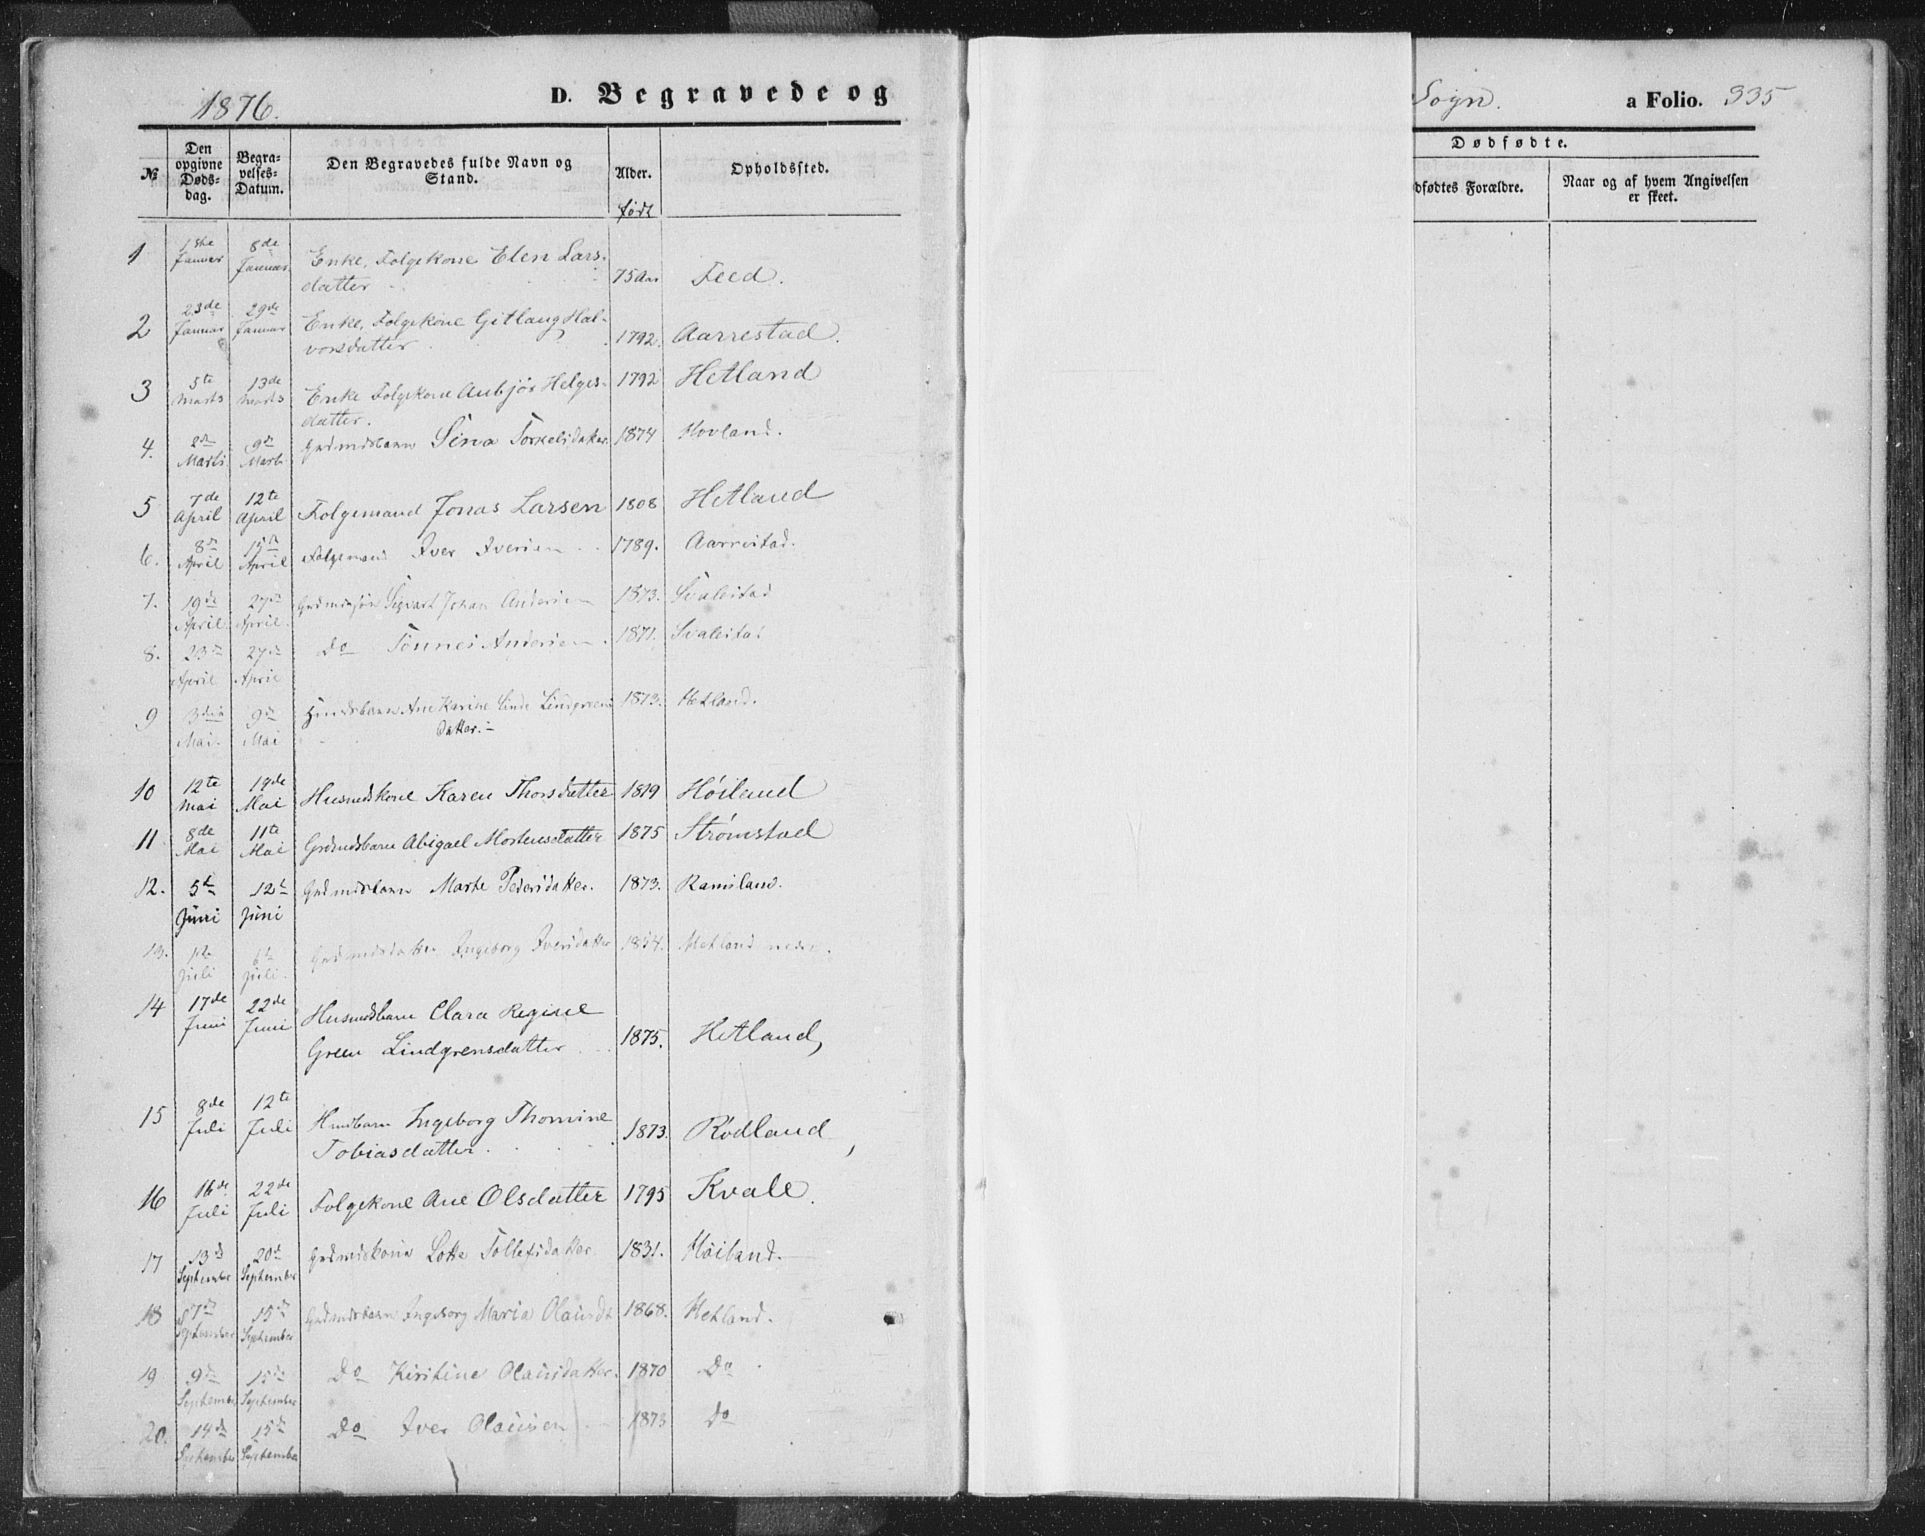 1876.
D. Begravede og
Sogn.
a Folio. 335
№
Den opgivne Døds-dag.
Begra-velses-Datum.
Den Begravedes fulde Navn og Stand.
Alder.
født
Opholdssted.
Dødfødte.
dfødtes Forældre.
Naar og af hvem Angivelsen er skeet.
1 1ste Januar 8de Januar Enke, Folgekone Elen Lars-datter 75 Aar Feed.
2 23de Januar 29de Januar Enke, Folgekone Gitlaug Hal-vorsdatter 1792. Aarrestad.
3 5te Marts 13de Marts Enke Folgekone Anbjør Helges-datter. 1792 Hetland
4. 2den Marts 9de Marts Grdmdsbarn Sina Torkelsdatter. 1874 Hovland.
5 7de April 12te April Folgemand Jonas Larsen 1808 Hetland
6. 8de April 15de April Folgemand Iver Iversen 1789. Aarrestad.
7. 19de April 27de April. Grdmdssøn Sigvart Johan Andersen 1873. Svalestad
8. 23de April 27de April Do Tønnes Andersen. 1871. Svalestad
9 3die Mai. 9de Mai Husmdsbarn Ane Karine Linde Lindgreens datter. 1873. Hetland.
10 12te Mai 19de Mai Husmdskone Karen Thorsdatter 1819 Høiland
11 8de Mai 11te Mai Grdmdsbarn Abigael Mortensdatter 1875 Strømstad
12. 5te Juni 12te Juni Grdmdsbarn Marte Pedersdatter. 1873. Ramsland.
13. 1ste Juli 6te Juli. Grdmdsdatter Ingeborg Iversdatter 1854. Hetland nedre.
14 17de Juni 22de Juni Husmdsbarn Clara Regine
Green Lindgrensdatter 1875. Hetland,
15 8de Juli 12te Juli Husmdbarn Ingeborg Thomine
Tobiasdatter. 1873. Rodland,
16 16de Juli 22de Juli Folgekone Ane Olsdatter 1795 Kvale.
17 13de September 20de September Grdmdskone Lotte Tollefsdatter 1831. Høiland.
18 7de September 15de September Grdmdsbarn Ingeborg Maria Olausdt 1868. Hetland.
19 9de September 15de September Do Kirstine Olausdatter. 1870 Do
20. 14de September 15de September Do Iver Olausen 1873 Do